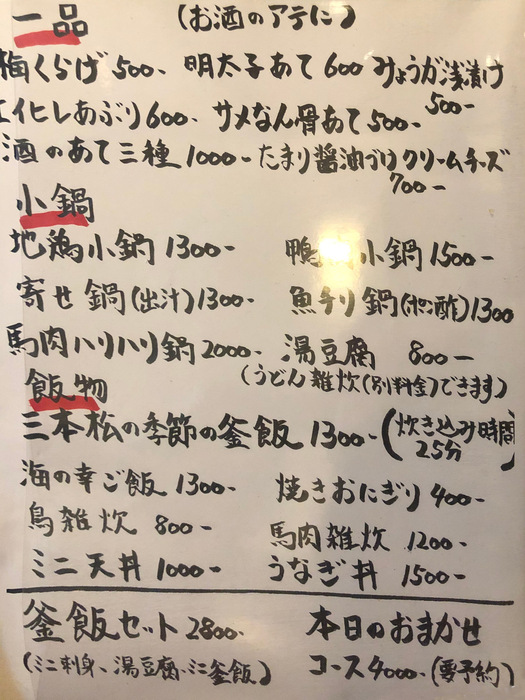 一品 (お酒のアテに)
梅くらげ 500- 明太子あて 600 みょうが浅漬け
500-
エイヒレあぶり 600- サメなん骨あて 500-
酒のあて三種 1000- たまり醤油づけクリームチーズ
700-
小鍋
地鶏小鍋 1300- 鴨 小鍋 1500-
寄せ鍋(出汁) 1300- 魚チリ鍋(ポン酢) 1300
馬肉ハリハリ鍋 2000- 湯豆腐 800-
飯物 (うどん雑炊(別料金)できます)
三本松の季節の釜飯 1300- (炊き込み時間
25分
海の幸ご飯 1300- 焼きおにぎり 400-
鳥雑炊 800- 馬肉雑炊 1200-
ミニ天丼 1000- うなぎ丼 1500-
釜飯セット 2800- 本日のおまかせ
(ミニ刺身、湯豆腐、ミニ釜飯) コース 4000-(要予約)